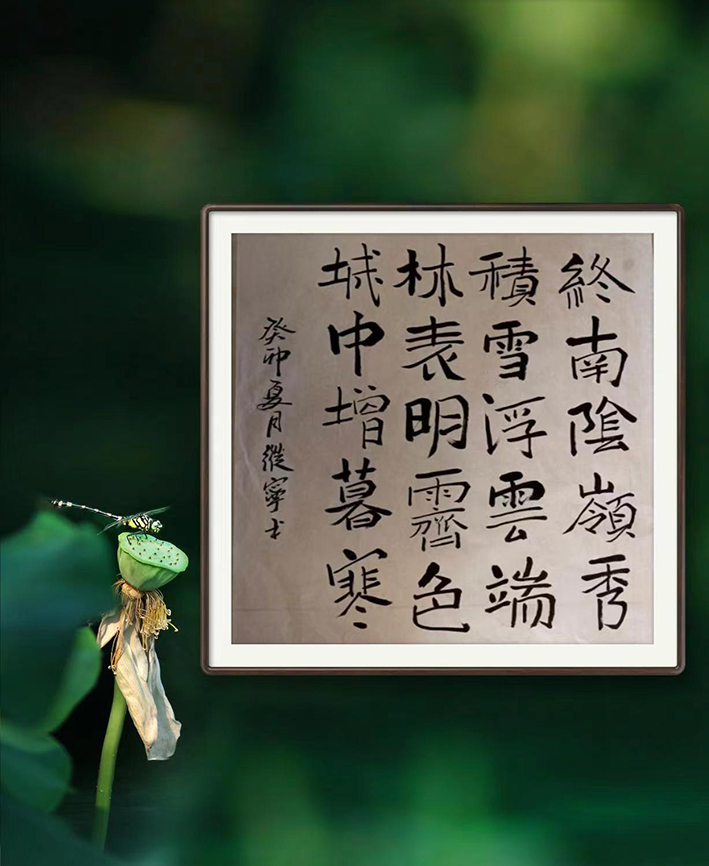 終南陰嶺秀
積雪浮雲端
林表明霽色
城中增暮寒
癸卯夏月縱寧书